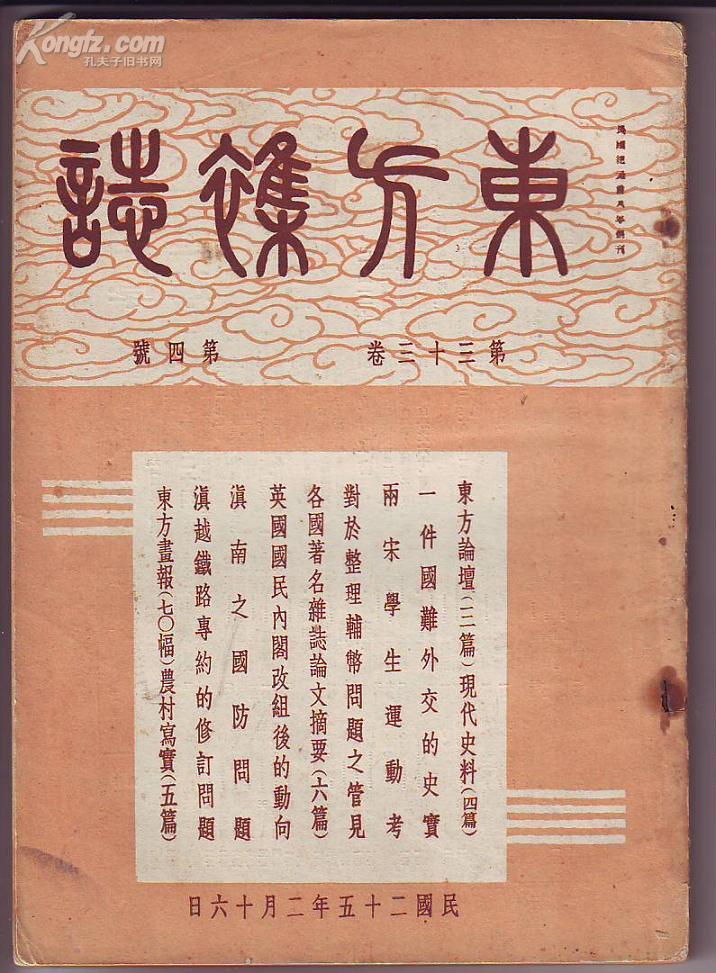 Kongfz.com
孔夫子旧书网
東方雜誌
第三十三卷 第四號
東方論壇(二篇)現代史料(四篇)
一件國難外交的史實
兩宋學生運動考
對於整理輔幣問題之管見
各國著名雜誌論文摘要(六篇)
英國國民內閣改組後的動向
滇南之國防問題
滇越鐵路專約的修訂問題
東方畫報(七〇幅)農村寫實(五篇)
民國二十五年二月十六日